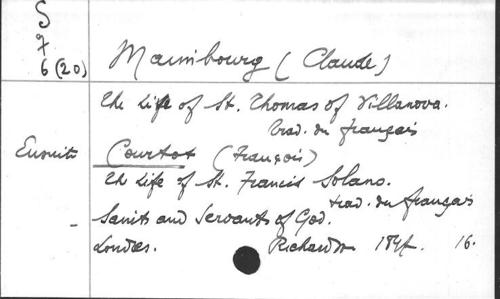 S
7
6 (20)
Maimbourg (Claude)
The Life of St. Thomas of Villanova.
trad. du français
Ensuite Courtot (François)
The Life of St. Francis Solano.
trad. du français
Saints and Servants of God.
Londres. Richardson 16.